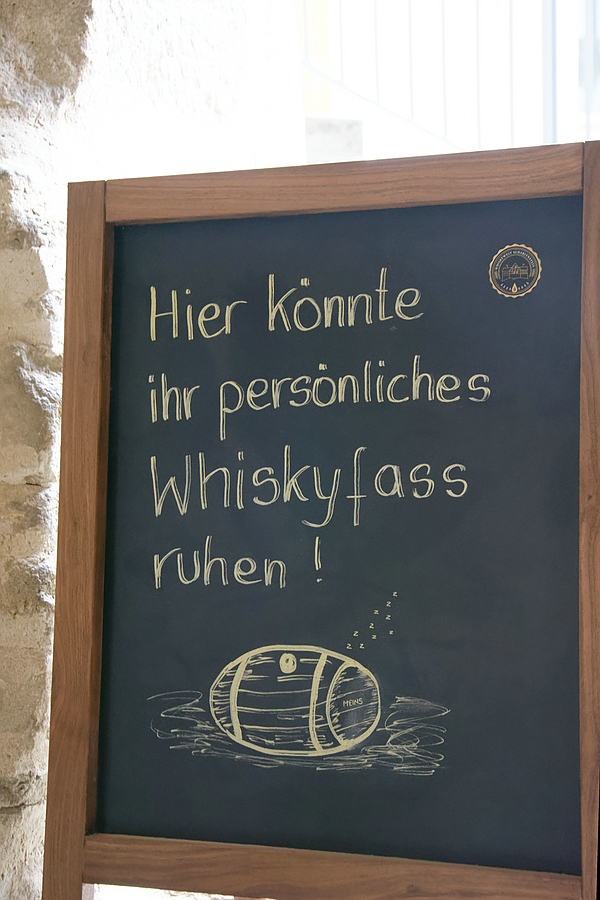 Hier könnte
ihr persönliches
Whiskyfass
ruhen !
z
z
z
z
z
z
z
z
MEINS